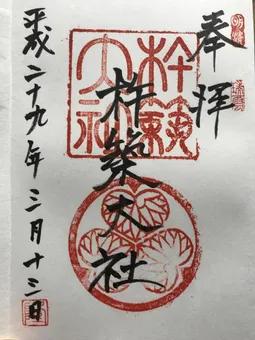 奉拝
杵築大社
杵築大社
平成二十九年三月十三日